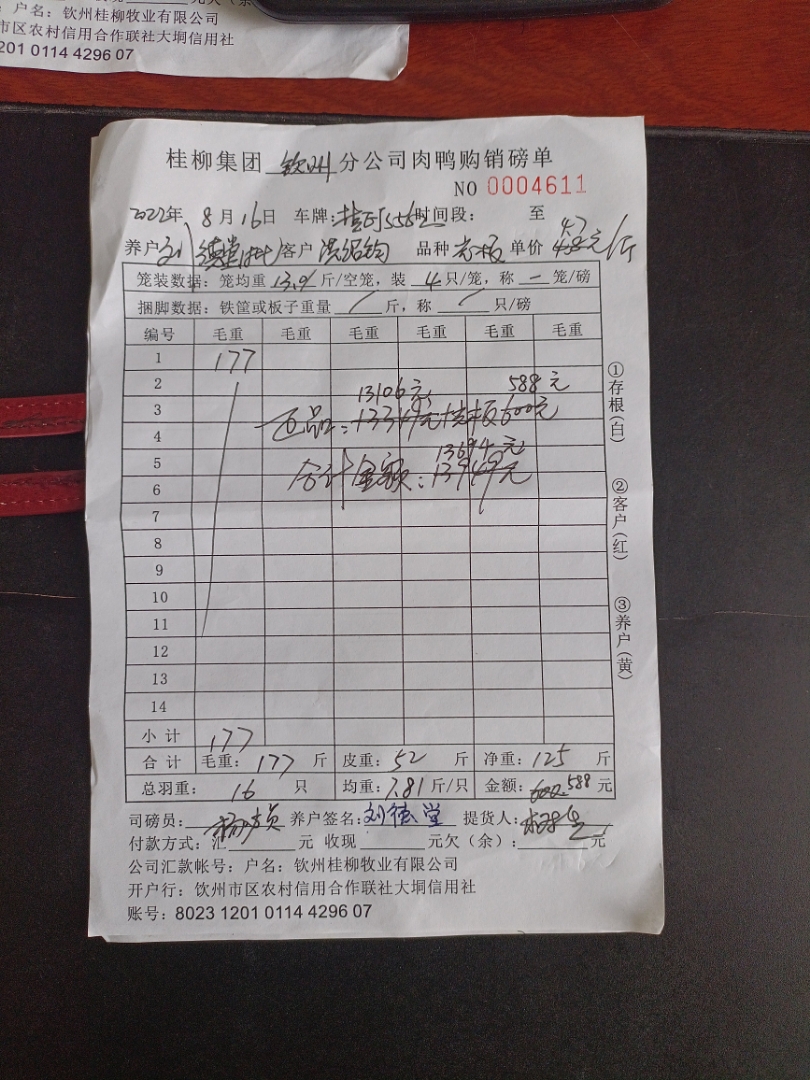 户名：钦州桂柳牧业有限公司
市区农村信用合作联社大垌信用社
201 0114 4296 07
桂柳集团 钦州 分公司肉鸭购销磅单
NO 0004611
2022年 8月16日 车牌： 时间段： 至
4.7
养户 刘德堂 客户 洪绍钧 品种 光板 单价 4.8元/斤
笼装数据：笼均重 13.0 斤/空笼，装 4 只/笼，称 一 笼/磅
捆脚数据：铁筐或板子重量 / 斤，称 / 只/磅
编号 毛重 毛重 毛重 毛重 毛重 毛重
1 177
2
13106元 588元
3 正品：13349元 光板600元
4
13694元
5
合计金额：13949元
6
7
8
9
10
11
12
13
14
小计 177
合计 毛重：177 斤 皮重：52 斤 净重：125 斤
总羽重：16 只 均重：7.81 斤/只 金额：600 588 元
司磅员： 养户签名：刘德堂 提货人：
付款方式：汇 元 收现 元欠（余）： 元
公司汇款帐号：户名：钦州桂柳牧业有限公司
开户行：钦州市区农村信用合作联社大垌信用社
账号：8023 1201 0114 4296 07
①存根（白）
②客户（红）
③养户（黄）